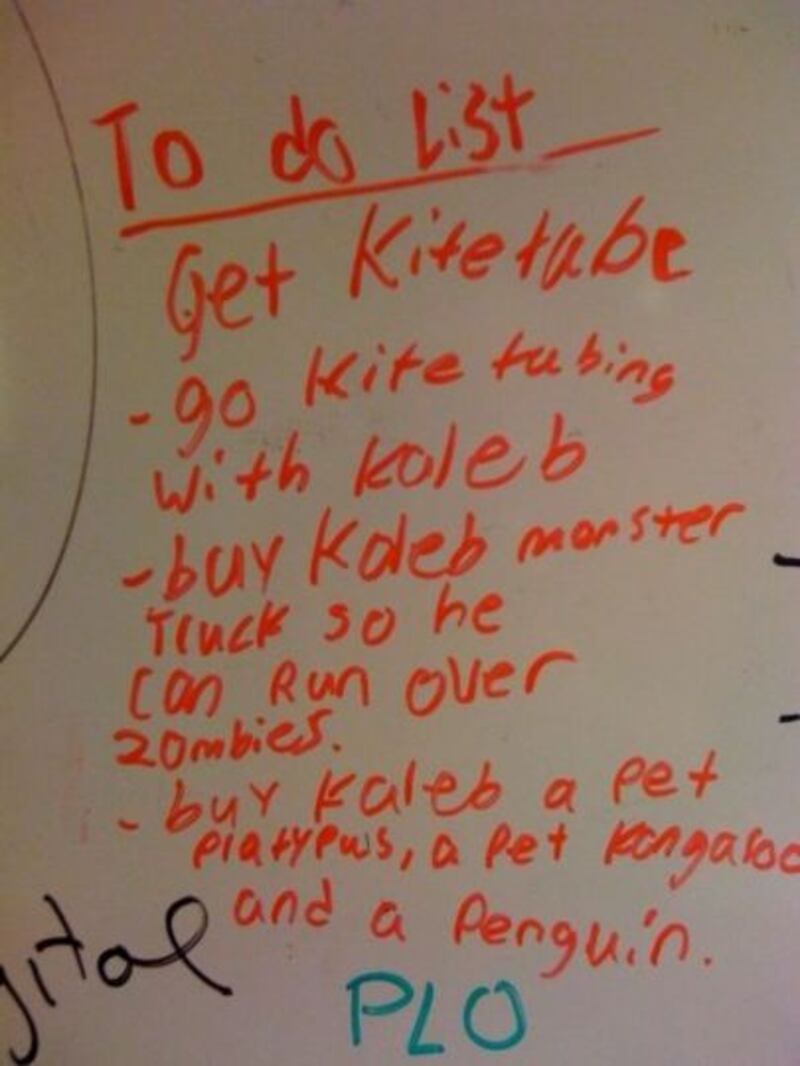 To do List
Get Kitetube
- go Kite tubing
with Kaleb
- buy Kaleb monster
Truck so he
can Run over
zombies.
- buy Kaleb a pet
platypus, a pet kangaroo
and a Penguin.
gital
PLO